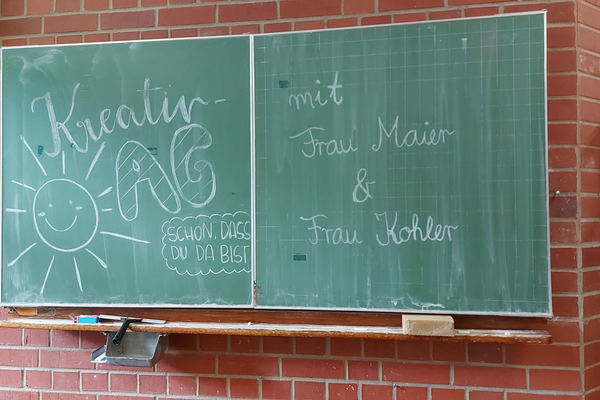 Kreativ-
AG
SCHÖN, DASS
DU DA BIST
mit
Frau Maier
&
Frau Kohler